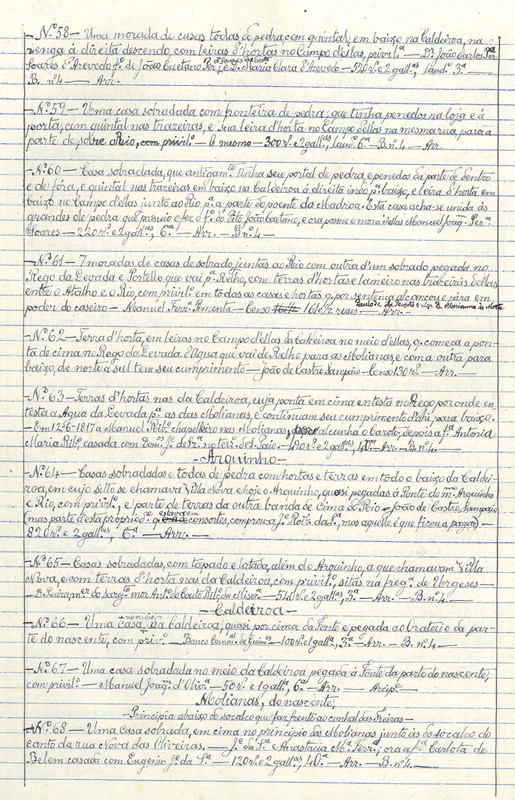 - Nº 58 - Uma morada de casas todas de pedra com quintal, em baixo na Caldeirôa, na
venga á direita descendo, com leiras d'hortas no Campo d'ellas, privilº - Dr. João Carlos Perª
Soares d'Azevedo fº de João Caetano Perª e D. Maria Clara d'Azevedo - rs. e 2 gallªs, Laud. 3ª -
B. nº 4 - Arr. -
- Nº 59 - Uma casa sobradada com fronteira de pedra, que tinha penedos na loja e á
porta, com quintal nas trazeiras, e sua leira d'horta no Campo d'ellas na mesma rua, para a
parte de sobre o Rio, com privilº - O mesmo - 300 rs. e 2 gallªs, laudº 6ª - B. nº 4 - Arr.
- Nº 60 - Casa sobradada, que antigamte tinha seu portal de pedra, e penedos da parte de dentro
e de fóra, e quintal nas trazeiras em baixo na Caldeirôa á direita indo pª baixo, e leira d'horta em
baixo no Campo d'ellas junto ao Rio pª a parte do poente da Madrôa. Esta casa acha-se unida ás
grandes de pedra que possuio e fez o fº do Pito João Caetano, e ora possue e mora n'ellas Manuel Joaqm Perª
Soares - 220 rs. e 2 gallªs, 6ª - Arr. - B. nº 4 -
- Nº 61 - 7 moradas de casas de sobrado, juntas ao Rio com outra d'um sobrado pegada no
Rego da Levada e Portello que vai pª Relho, com terras d'hortas e lameiro nas trazeiras d'ellas
entre o Atalho e o Rio, com privilº em todas as casas e hortas q. por sentença alcançou e pára em
poder do caseiro - Manuel Ferrª Pimenta - Censo 1618 reaes - Arr. -
- Nº 62 - Terra d'horta, em leiras no Campo d'ellas da Caldeirôa no meio d'ellas, q. começa a pon-
ta de cima no Rego da Levada d'Agua que vai de Relho para as Molianas, e com a outra para
baixo, de norte a sul tem seu cumprimento - João de Castro Sampaio - Censo 130 rs. - Arr. -
- Nº 63 - Terras d'hortas nas da Caldeirôa, cuja ponta em cima entesta no Rego por onde en-
testa a Agua da Levada pª as das Molianas, e continuam seu cumprimento d'ahi para baixo.
- Em 12-6-1817 a Manuel Ribº chapelleiro nas Molianas, por alcunha o Batoto, depois a fª Antonia
Maria Ribº casada com Domºs Jº da Sª no terrº de S. Paio - rs. e 2 gallªs, 40ª - Arr. - B. nº 4 -
- Arquinho -
- Nº 64 - Casas sobradadas e todas de pedra com hortas e terras em todo o baixo da Caldei-
rôa, em cujo sitio se chamava Villa Nova e hoje o Arquinho, quasi pegadas á Ponte do mmº Arquinho
e Rio, com privilº, e parte de terras da outra banda de cima do Rio - João de Castro Sampaio
(mas parte d'esta propriede estavam consortes, comprova Jº Roiz da Sª, mas aquelle é que ficou a pagar) -
820 rs. e 2 gallªs, 6ª - Arr. -
- Nº 65 - Casas sobradadas, com tapado e lotada, alem de Arquinho, a que chamavam Villa
Nova, e com terras d'horta nas da Caldeirôa, com privilº, sitas na fregª de Urgeses -
- Arr. - B. nº 4 -
- Caldeiroa -
- Nº 66 - Uma casa, na Caldeirôa, quasi por cima da Fonte e pegada ao Oratorio da par-
te do nascente, com privº - Banco Commal de Guimes - 100 rs. e 1 gallª, 3ª - Arr. - B. nº 4 -
- Nº 67 - Uma casa sobradada no meio da Caldeirôa pegada á Fonte da parte do nascente,
com privilº - Manuel Joaqm d'Olivª - 50 rs. e 1 gallª, 6ª - Arr. - Arcipº -
Molianas, do nascente,
- Principia abaixo do socalco que faz frente ao cunhal das Freiras -
- Nº 68 - Uma casa sobrada, em cima no principio das Molianas junto ás do socalco do
canto da rua Nova das Oliveiras. - Jº da Sª e Anastacia Mª Ferrª; ora a fª Carlota de
Belem casada com Eugenio Jº da Sª - 120 rs. e 2 gallªs, 40ª - Arr. - B. nº 4 -